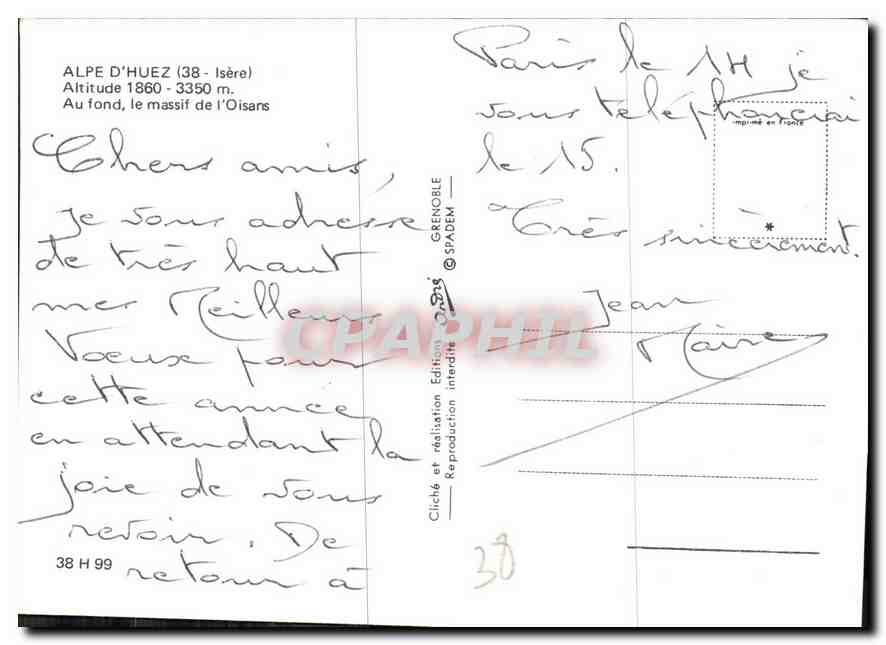 ALPE D'HUEZ (38 - Isère)
Altitude 1860 - 3350 m.
Au fond, le massif de l'Oisans
Chers amis,
je vous adresse
de très haut
mes Meilleurs
Vœux pour
cette année
en attendant la
joie de vous
revoir. De
retour à
38 H 99
Cliché et réalisation Editions André GRENOBLE
Reproduction interdite © SPADEM
Paris le 14 je
vous téléphonerai
le 15.
Très sincèrement.
Jean
Maire
imprimé en France
*
38
CPAPHIL